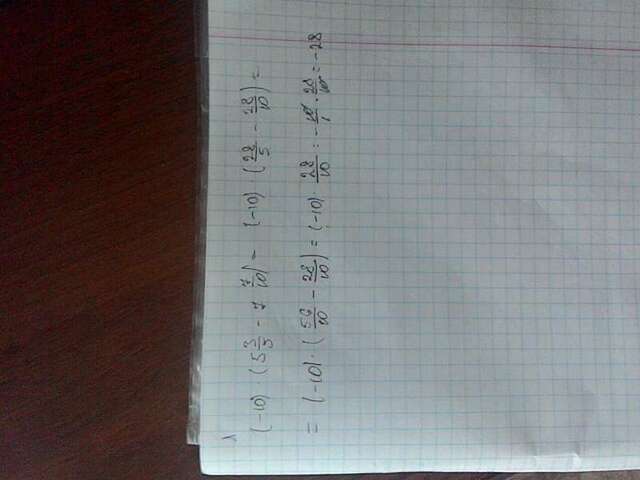 1
(-10) · (5 3/5 - 7 7/10) = (-10) · (28/5 - 28/10) =
= (-10) · (56/10 - 28/10) = (-10) · 28/10 = -10/1 · 28/10 = -28